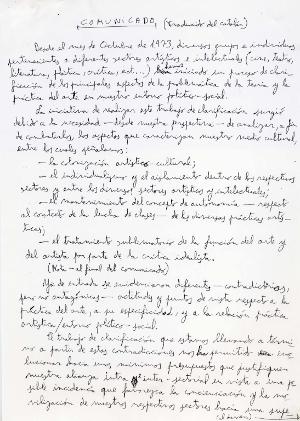 COMUNICADO, (traducido del catalán)
Desde el mes de Octubre de 1973, diversos grupos e individuos
pertenecientes a diferentes sectores artísticos e intelectuales (cine, teatro,
literatura, plástica, crítica, ect...) iniciado un proceso de clari-
ficación de los principales aspectos de la problemática de la teoría y la
práctica del arte en nuestro entorno político-social.
La iniciativa de realizar este trabajo de clarificación surgió
debido a la necesidad — desde nuestra perspectiva — de analizar, a fin
de combatirlos, los aspectos que caracterizan nuestro medio cultural,
entre los cuales señalamos:
— la colonización artístico cultural;
— el individualismo y el aislamiento dentro de los respectivos
sectores y entre los diversos sectores artísticos y intelectuales;
— el mantenimiento del concepto de autonomía — respecto
al contexto de la lucha de clases — de las diversas prácticas artís-
ticas;
— el tratamiento sublimatorio de la función del arte y
del artista por parte de la crítica idealista.
(Nota — al final del comunicado)
Ya de entrada se evidenciaron diferentes — contradictorias,
pero no antagónicas — actitudes y puntos de vista respecto a la
práctica del arte, a su especificidad, y a la relación práctica
artística/entorno político-social.
El trabajo de clarificación que estamos llevando a térmi-
no a partir de estas contradicciones nos ha permitido
unos mínimos presupuestos que justifiquen
nuestra alianza intra inter-sectorial en vista a una po
sible incidencia que favorezca la concienciación y la mo-
vilización de nuestros respectivos sectores hacia una